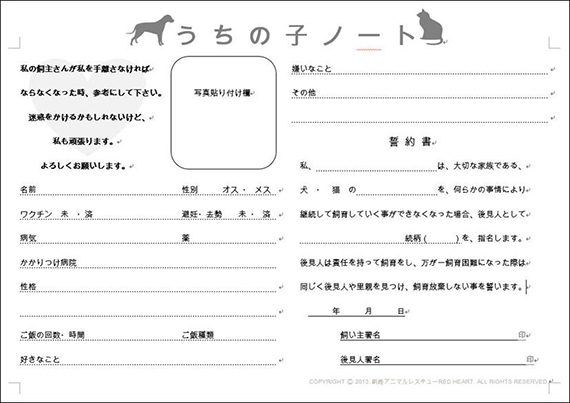 うちの子ノート
私の飼主さんが私を手離さなければ
ならなくなった時、参考にして下さい。
迷惑をかけるかもしれないけど、
私も頑張ります。
よろしくお願いします。
写真貼り付け欄
名前 性別 オス・メス
ワクチン 未・済 避妊・去勢 未・済
病気 薬
かかりつけ病院
性格
ご飯の回数・時間 ご飯種類
好きなこと
嫌いなこと
その他
誓約書
私、 は、大切な家族である、
犬・猫の を、何らかの事情により
継続して飼育していく事ができなくなった場合、後見人として
続柄( )を、指名します。
後見人は責任を持って飼育をし、万が一飼育困難になった際は
同じく後見人や里親を見つけ、飼育放棄しない事を誓います。
年 月 日
飼い主署名 印
後見人署名 印
COPYRIGHT © 2013 釧路アニマルレスキューRED HEART. ALL RIGHTS RESERVED.